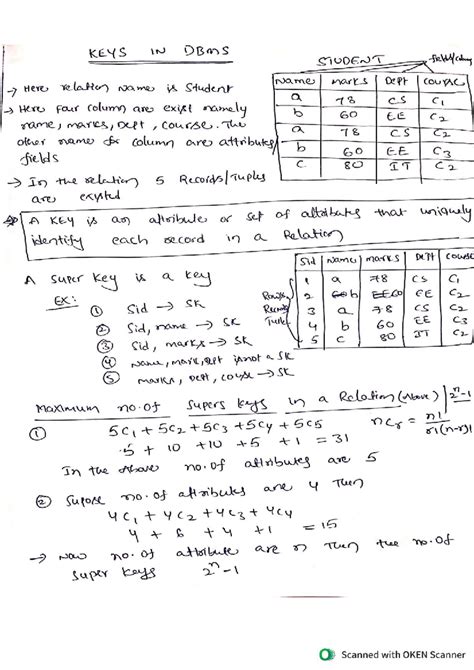 KEYS IN DBMS
STUDENT
→ Here relation name is Student
→ Here four column are exist namely
name, marks, Dept, course. The
other name for column are attributes/
fields
→ In the relation 5 Records/Tuples
are existed
Name marks Dept course
a 78 CS C1
b 60 EE C2
a 78 CS C2
b 60 EE C3
c 80 IT C2
A KEY is an attribute or set of attributes that uniquely
identify each record in a Relation
A super key is a key
EX: ① Sid → SK
② Sid, name → SK
③ Sid, marks → SK
④ name, mark, Dept is not a SK
⑤ marks, Dept, course → SK
Sid Name marks Dept course
1 a 78 CS C1
2 b EE C2
3 a 78 CS C2
4 b 60 EE C3
5 c 80 IT C2
Maximum no. of supers keys in a Relation (Above) 2^n-1
① 5C1 + 5C2 + 5C3 + 5C4 + 5C5
5 + 10 + 10 + 5 + 1 = 31
nCr = n!/r!(n-r)!
In the Above no. of attributes are 5
② Supose no. of attributes are 4 Then
4C1 + 4C2 + 4C3 + 4C4
4 + 6 + 4 + 1 = 15
→ Now no. of attribute are n Then the no. of
super keys 2^n-1
Scanned with OKEN Scanner